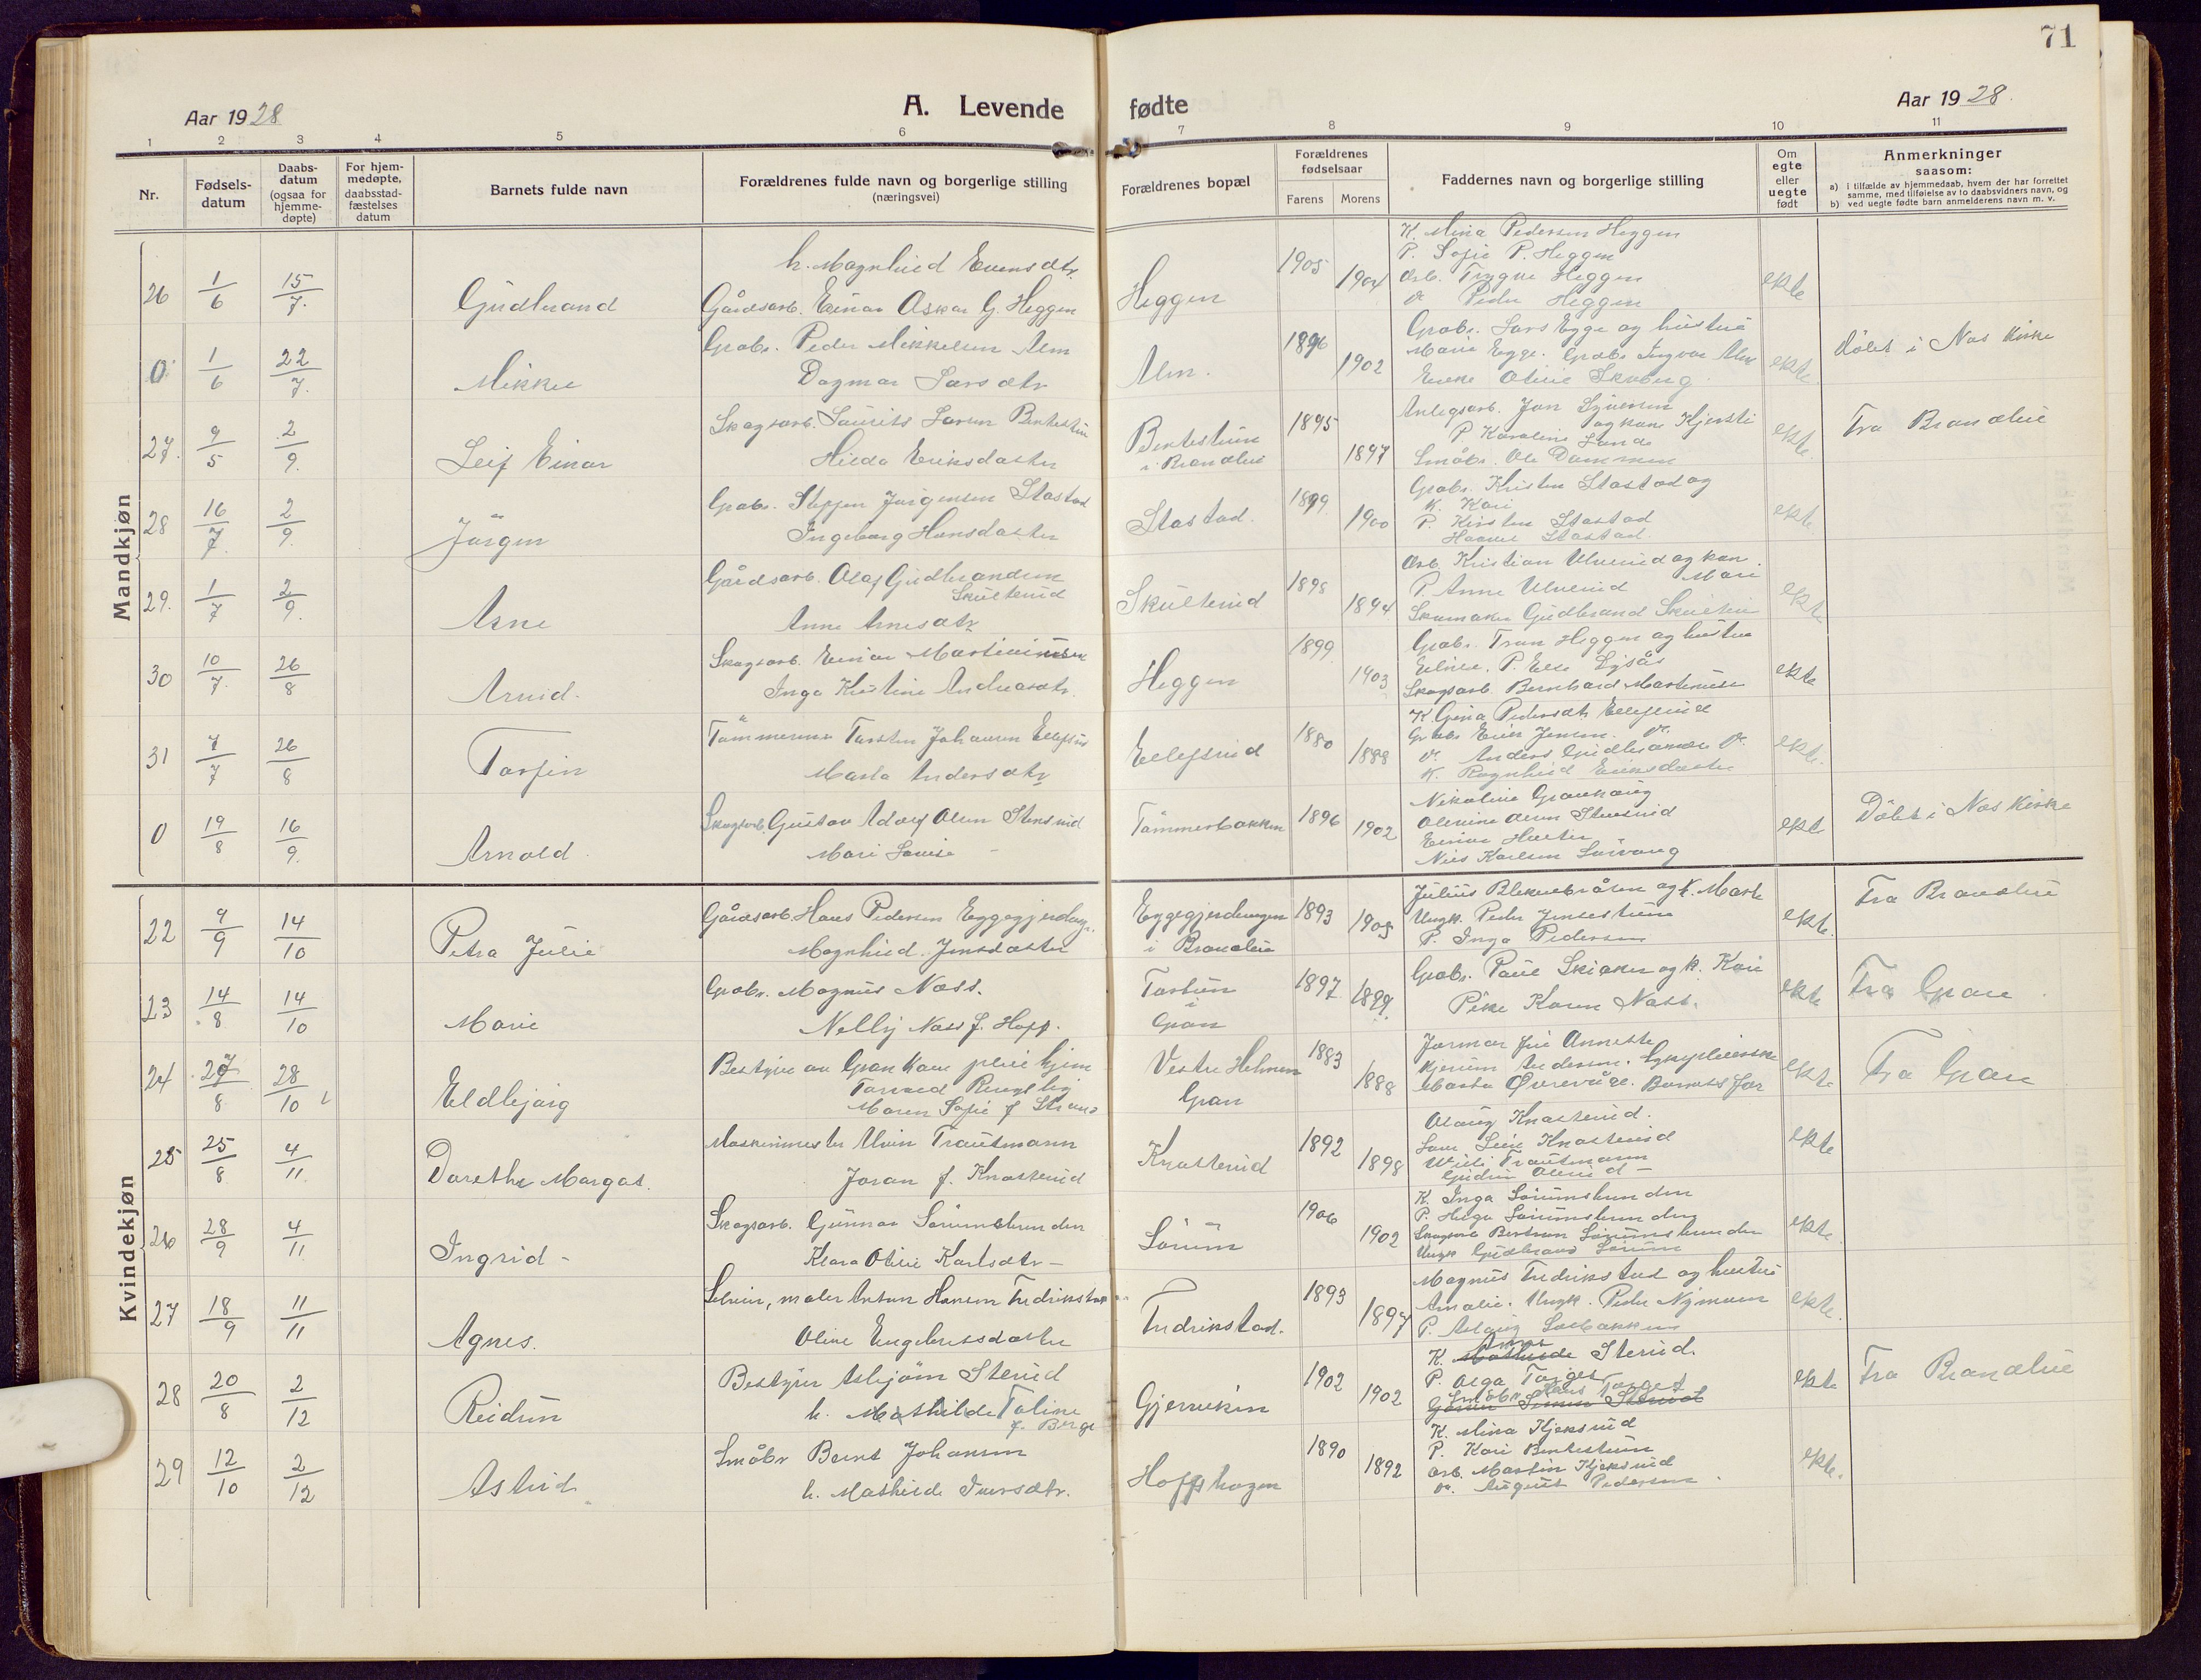 71
Aar 1928
A. Levende fødte
Aar 1928.
1 2 3 4 5 6 7 8 9 10 11
Nr.
Fødsels-
datum
Daabs-
datum
(ogsaa for
hjemme-
døpte)
For hjem-
medøpte,
daabsstad-
fæstelses
datum
Barnets fulde navn
Forældrenes fulde navn og borgerlige stilling
(næringsvei)
Forældrenes bopæl
Forældrenes
fødselsaar
Farens Morens
Faddernes navn og borgerlige stilling
Om
egte
eller
uegte
født
Anmerkninger
saasom:
a) i tilfælde av hjemmedaab, hvem der har forrettet
samme, med tilføielse av to daabsvidners navn, og
b) ved uegte fødte barn anmelderens navn m. v.
Mandkjøn
26 1/6 15/7. Gudbrand
h. Magnhild Evensdtr.
Gårdsarb. Einar Oskar G. Heggen
Heggen 1905 1904
K. Mina Pedersen Heggen
P. Sofie P. Heggen
Arb. Trygve Heggen
Peder Heggen
ekte
0 1/6 22/7. Mikkel
Grdbr. Peder Mikkelsen Alm
Dagmar Larsdtr
Alm. 1896 1902
Grdbr. Lars Egge og hustru
Marie Egge. Grdbr Ingvar Alm
Enke Otilie Skoberg
ekte.
döbt i Nes Kirke
27. 9/5 2/9. Leif Einar
Skogsarb. Laurits Larsen Bentestuen
Hilda Eriksdatter
Bentestuen
i Brandbu
1895 1897
Anlegsarb. Jon Syversen
og kone Kjersti
P Karoline Lande
Småbr. Ole Dammen
ekte.
Fra Brandbu
28 16/7. 2/9. Jörgen
Grdbr. Steffen Jörgensen Stastad
Ingeborg Hansdatter
Stastad. 1899 1900
Grdbr. Kristen Stastad og
K. Kari
P. Kirsten Stastad
Stastad.
ekte.
29. 1/7 2/9. Arne
Gårdsarb. Olaf Gudbrandsen
Skutterud
Anne Arnesdtr
Skutterud 1898 1894
Arb. Kristian Ulverud og kon.
Mari
P. Anne Ulverud
Skomaker Gudbrand
ekte
30 10/7. 26/8 Arvid.
Skogsarb. Einar Martiniusen
Inga Kristine Andreasdtr.
Heggen 1899 1903
Grdbr. Tron Heggen og hustru
P. Else Lysås
Skogsarb. Bernhard Martinusen
ekte
31 7/7 26/8 Torfin
Tömmerm. Torsten Johansen Ellefsrud
Marta Andersdtr
Ellefsrud 1880 1888
K. Gina Pedersdtr Ellefsrud
Grdbr. Erik Jensen
Anders Gudbrandsen
K. Ragnhild Eriksdatter
ekte.
0 19/8 16/9. Arnold.
Skogsarb. Gustav Adolf Olsen Stensrud
Mari Lovise –
Tömmerbakken 1896 1902
Nikoline Granhaug
Olevine Olsen Stensrud
Einar
Nils Karlsen
ekte
Döbt i Nes Kirke
Kvindekjøn
22 9/9 14/10 Petra Julie
Gårdsarb. Hans Pedersen Eggegjerdingen.
Magnhild Jensdatter
Eggegjerdingen
i Brandbu
1893 1905
Julius Bleknebråten og k. Marte
Ungk. Peder Jensestuen
P. Inga Pedersen
ekte.
Fra Brandbu
23 14/8 14/10 Marie
Grdbr. Magnus Næss.
Nelly Næss f. Hoff.
i
Gran
1897 1899.
Grdbr. Paul Skiaker og k. Kari
Pike Karen Næss.
ekte
Fra Gran
24 27/8 28/10 Eldbjørg
Bestyrer av Gran kom. pleiehjem
Maren Sofie f Strand
Vestre Helmen
Gran
1883 1888
Marta Øvrevåge. Barnets far
ekte
Fra Gran
25 25/8 4/11. Dorethe Margot.
Maskinmester Alvin Trautmann
Joran f. Knatterud
Knatterud 1892 1898
Olaug Knatterud.
Knatterud
Willi Trautmann
Gudrun –
ekte
26 28/9 4/11. Ingrid –
Skogsarb. Gunnar Sörumshenden
Klara Otilie Karlsdtr –
Sörum 1906 1902
K. Inga Sörumshenden
P. Helga Sörumshenden
Skogsarb Sörumshenden
Ungk Gudbrand Sörum
ekte.
27 18/9 11/11 Agnes.
maler Anton Hansen Fredrikstad
Oline Engebretsdatter
Fredrikstad. 1893 1897
Magnus Fredrikstad og hustru
Amalie. Ungk. Peder Nymoen
P. Aslaug
ekte.
28 20/8 2/12 Reidun
Bestyrer Asbjörn Sterud
h. Mathilde Taline
f. Berge
Gjervekin 1902 1902
Anna
K. Mathilde Sterud.
P. Olga Torget
Småbr. Hans Torget
ekte
Fra Brandbu
29 12/10 2/12 Astrid
Småbr Bernt Johansen
h. Mathilde Iversdtr.
Hoffshagen 1890 1892
K. Mina Kjeksrud
P. Kari Bentestuen
Arb. Martin Kjeksrud
August Pedersen
ekte.